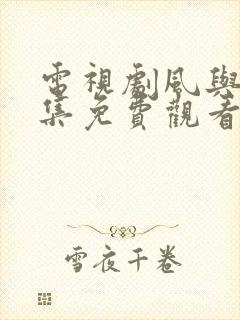 電視劇風與
集免費觀看
雪夜千卷